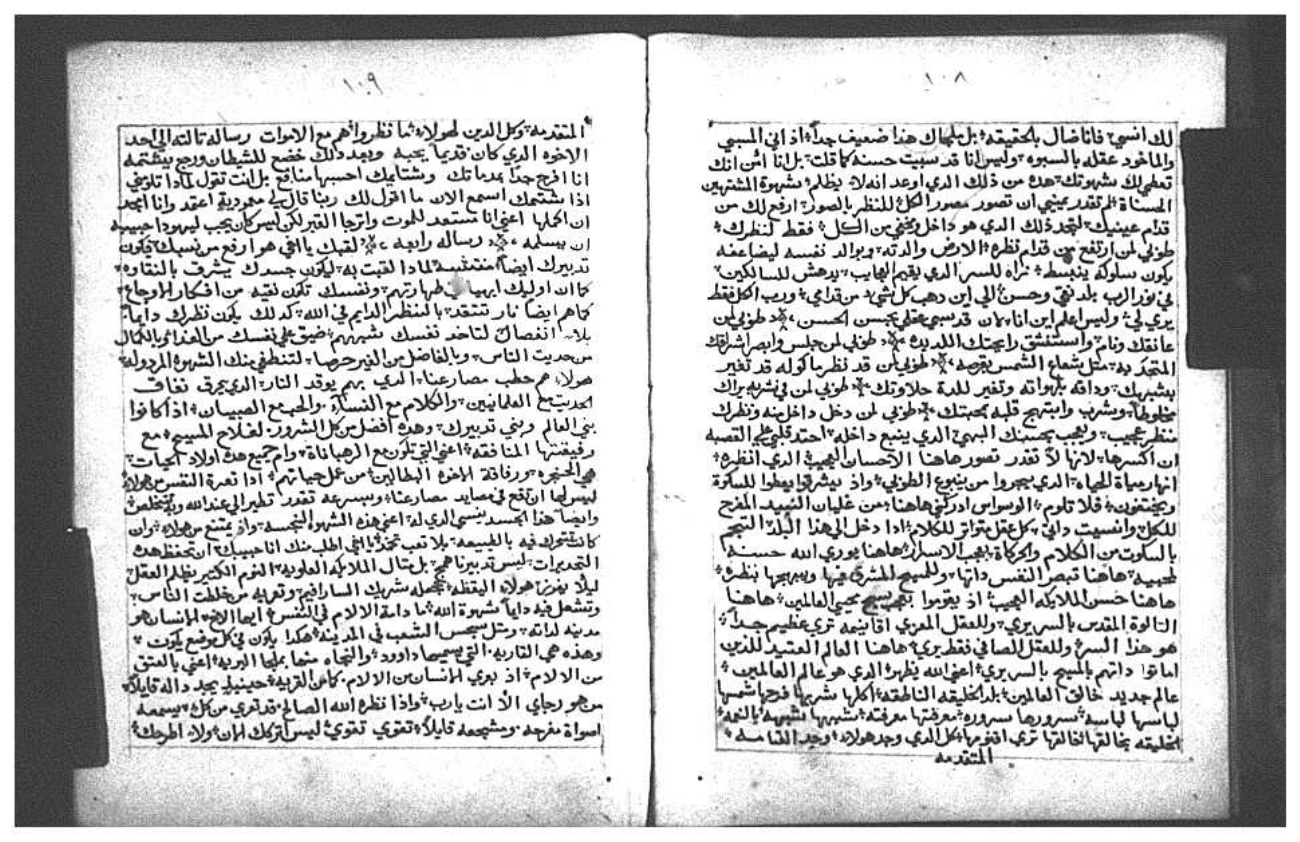 ١٠٨
لك انسي فانا ضال بالحقيقه بل مثالك هذا ضعيف جداً اذ اني المسبي
والماخود عقله بالسبوه وليس انا قد سبيت حسنه كما قلت بل انا امن انك
تعطي لك شهوتك هده من ذلك الدي اوعد انه لا يظلم شهوة المشتهين
الحسناة لم تقدر عيني ان تصور مصور الكل للنظر بالصور ارفع لك من
قدام عينيك لتجد ذلك الدي هو داخل ومخفي من الكل فقط لنظرك
طوبي لمن ارتفع من قدام نظره الارض والدته وبوالد نفسه ليضاعفه
يكون سلوكه ينبسط نراه للسر الدي يقيم العجايب يدهش للسالكين
في نور الرب بلد نقي وحسن الي اين دهب كل شي من قدامي ورب الكل فقط
يري لي وليس اعلم اين انا لان قد سبي عقلي بحسن الحسن طوبي لمن
عانقك ونام واستنشق رايحتك اللديده طوبي لمن جلس وابصر اشراقك
المتحد به مثل شعاع الشمس بقرصه طوبي لمن قد نظر ماكوله قد تغير
بشبهك ودافه بلهواته وتغير للدة حلاوتك طوبي لمن في شربه يراك
مخلوطاً ويشرب وابتهج قلبه بمحبتك طوبي لمن دخل داخل منه ونظرك
منظر عجيب وتعجب بحسنك البهي الدي ينبع داخله احتد قلبي علي القصبه
ان اكسرها لانها لا تقدر تصور هاهنا الاحسان العجيب الدي انظره
انهار مياة الحياه الدي يجروا من ينبوع الطوبي واذ يشرقوا يعطوا للسكوة
ويختفون فلا تلوم الوسواس ادركني هاهنا من غليان النبيد المفرح
للكل وانسيت داتي كل عقل متواتر للكلام ادا دخل الي هذا البلد التحم
بالسكوت من الكلام والحركاة بعجب الاسرار هاهنا يوري الله حسنه
لمحبيه هاهنا تبصر النفس داتها وللمسيح المشرق فيها ويبهجها بنظره
هاهنا حسن الملايكه العجيب اذ يقوموا بعجب يسبح لمحيي العالمين هاهنا
التالوة المقدس بالسر يري وللعقل المعري اقانيمه تري عظيم جداً
هو هذا السر وللعقل الصافي فقط يري هاهنا العالم العتيد للذين
اماتوا داتهم بالمسيح بالسر يري اعني الله يظهر الدي هو عالم العالمين
عالم جديد خالق العالمين بلد الخليقه الناطقه اكلها شربها فرحها شمسها
لباسها لباسه سرورها سروره معرفتها معرفته شبهها شبهه بالنعمه
الخليقه بخالقها لخالقها تري اقنومها كل الدي وجد هولاء وجد القيامه
المتقدمه
١٠٩
المتقدمه وكل الدين لهولاء ما نظروا هم مع الاموات رساله تالته الي احد
الاخوه الدي كان قديماً يحبه وبعد دلك خضع للشيطان ورجع يشتمه
انا افرح جداً بمدماتك وشتايمك احسبها منافع بل انت تقول لمادا تلومني
اذا شتمتك اسمع الان ما اقول لك ربنا قال لي معموديه اعتمد وانا ايجد
ان اكملها اعني انا مستعد للموت واترجا القبر لكن ليس كان يجب ليهودا حبيبه
ان يسلمه رساله رابعه لقبك يا اخي هو ارفع من نسبك فيكون
تدبيرك ايضاً لمادا لقبت به ليكون جسدك يشرف بالنقاوه
كما ان اوليك ابهيا في طهارتهم ونفسك تكون نقيه من افكار الاوجاع
كما هم ايضا نار تتقد بالنظر الدايم في الله كدلك يكون نظرك دايما
بلا انفصال لتاخد نفسك شبههم ضيق علي نفسك من الغدا غير الكمال
من حديت الناس وبالفاضل من الغير حرصا لتنطفي منك الشهوه المردوله
هولاء هم حطب مصارعنا الدي بهم يوقد النار الدي يمرق نفاق
الحديت مع العلمانيين والكلام مع النساء والحب مع الصبيان اذا كانوا
بني العالم وبني تدبيرك وهده افضل من كل الشرور لفلاح المسيح مع
رفيقتها المنافقه اعني التي تكون مع الرهباناة وام جميع هده اولاد الحيات
هي الحنجره ورفاقة الاخوه البطالين من عمل حياتهم ادا تعرة النفس من هولاء
ليس لها ان تقع في مصايد مصارعنا وبسرعه تقدر تطير الي عند الله وتتخلص
وايضاً هدا الجسد ينسي الدي له اعني هده الشهوه النجسه واذ يمتنع من هولاء وان
كانت تتحرك فيه بالطبيعه بلا تعب تخمد يا اخي اطلب منك انا حبيبك ان تحفظ هده
التدبيرات ليس تدبيرنا هم بل متال الملايكه العلويه النوم الكتير يظلم العقل
ليلا يفوز هولاء اليقظه تجعله شريك السارافيم وتعريه من خلطة الناس
وتشعل فيه دايماً شهوة الله ما دامة الالام في النفس ايها الاخ الانسان هو
مدينه لداته ومتل سيحبس الشعب في المدينه هكدا يكون في كل موضع يكون
وهده هي القاريه التي يسميها داوود والنجاه منها بملجا البريه اعني بالعتق
من الالام اذ يعري الانسان من الالام كما من القريه حينيد يجد داله قايلاً
من هو رجاي الا انت يارب واذا نظره الله الصالح قد تعري من كل يسمعه
اصواة مفرحه ومشجعه قايلاً تقوي تقوي ليس اتركك الان ولا اطرحك